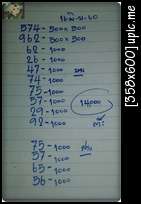 16-มิ.ย.-60
574-500×500
962-500×500
62-1000
26-1000
47-1000
74-1000
75-1000
57-1000
29-1000
92-1000
14000
75-1000
57-1000
65-1000
56-1000
[356x600] upic.me